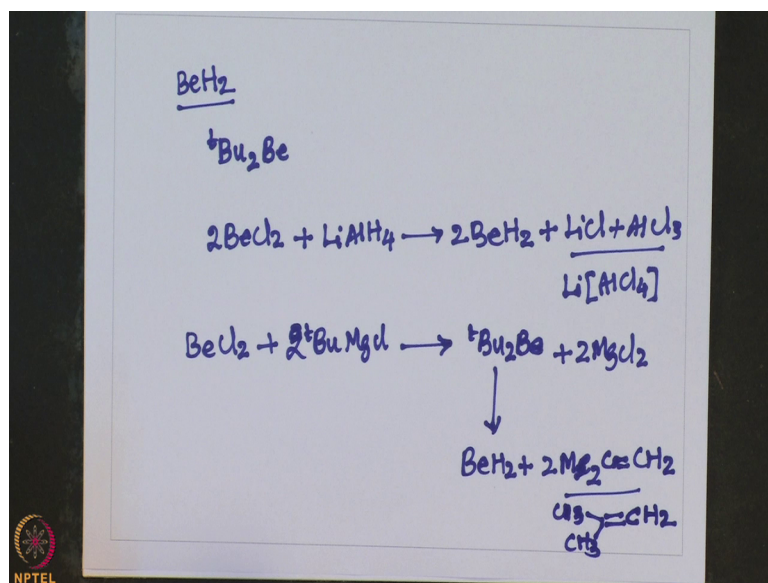 BeH2
tBu2Be
2BeCl2 + LiAlH4 → 2BeH2 + LiCl + AlCl3
Li[AlCl4]
BeCl2 + 2tBuMgCl → tBu2Be + 2MgCl2
BeH2 + 2Me2C=CH2
CH3
=CH2
CH3
NPTEL